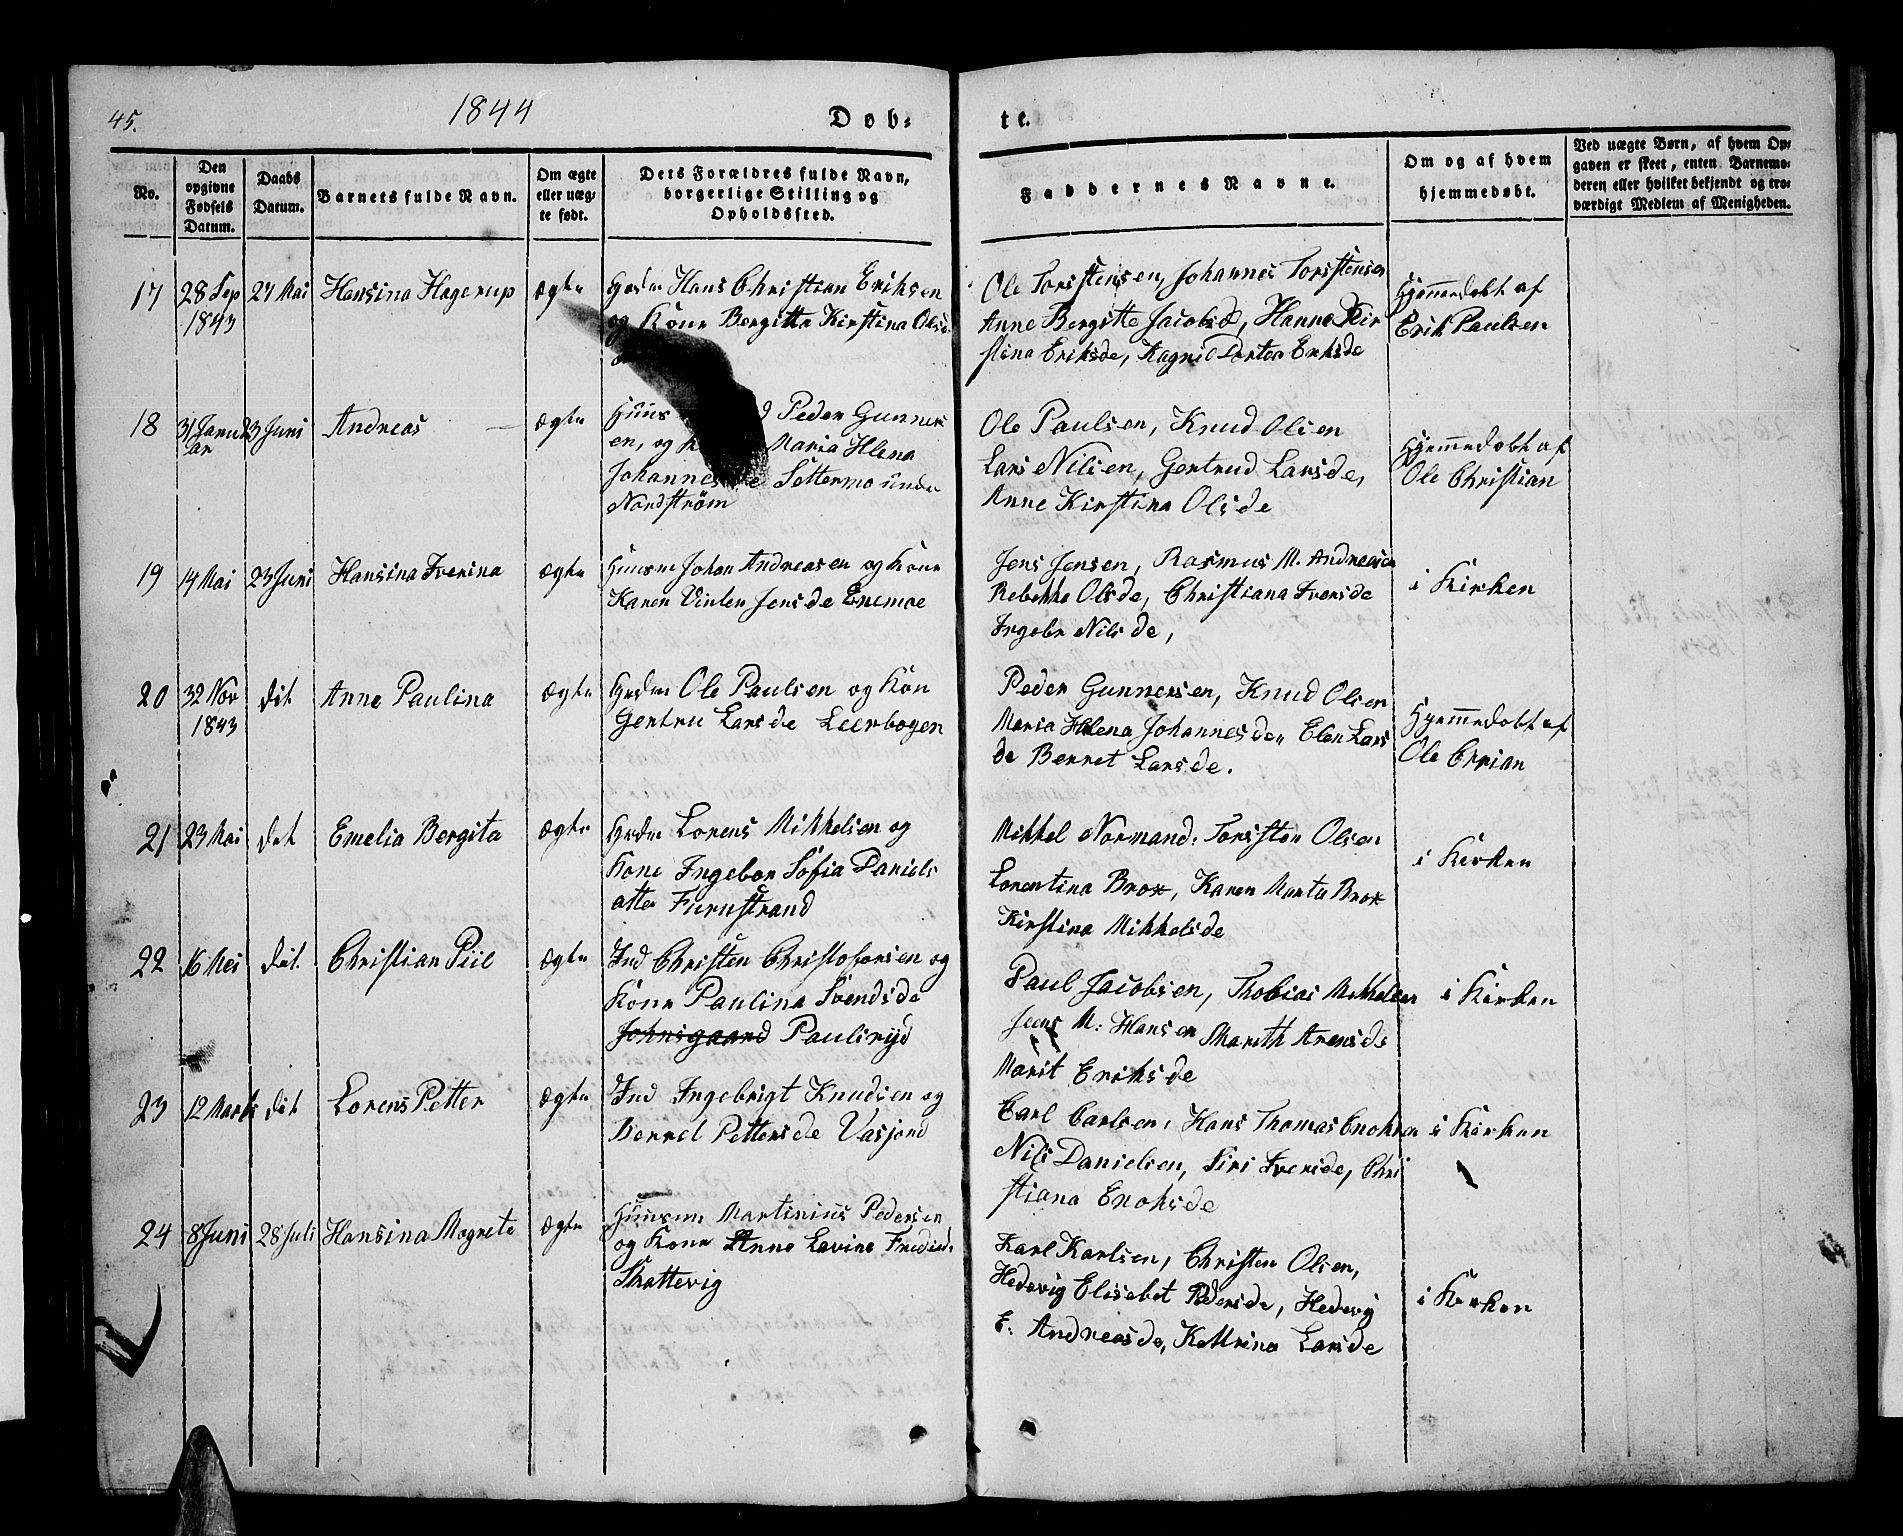 45.
1844
Døb-
te.
No.
Den opgivne Fødsels Datum.
Daabs Datum.
Barnets fulde Navn.
Om ægte eller uæg-te født.
Dets Forældres fulde Navn,
borgerlige Stilling og
Opholdssted.
Faddernes Navne.
Om og af hvem
hjemmedøbt.
Ved uægte Børn, af hvem Op-
gaven er skeet, enten Barnemo-
deren eller hvilket bekjendt og tro-
værdigt Medlem af Menigheden.
17 28 Sep 27 Mai Hansina Hagerup ægte Hans Christian Eriksen
1843
og Kone Bergitte Kirstina Olsd
Ole Torstensen, Johannes Torstensen
Anne Bergitte Jacobsd, Hanna Kir
stina Eriksde, Eriksde
Hjemmedøbt af
Erik Paulsen
18 31 Janu 23 Juni Andreas ægte Huus Peder Gunner
ar
en, og Maria Hlena
Johannes Settermo under
Nordstrøm
Ole Paulsen, Knud Olsen
Lars Nilsen, Gertrud Larsde,
Anne Kirstina Olsde
Hjemmedøbt af
Ole Christian
19 14 Mai 23 Juni Hansina Iverina ægte Huusm Johan Andreasen og Kone
Karen Jensde Enemoe
Jens Jensen, Rasmus M. Andreasen
Rebekka Olsde, Christiana Iversde
Ingebr Nilsde,
i Kirken
20 32 Nov dit Anne Paulina ægte Ole Paulsen og Kon
1843
Gertru Larsde Leerbogen
Peder Gunnersen, Knud Olsen
Maria Helena Johannesde, Elen Lars
de Berret Larsde.
Hjemmedøbt af
Ole Crrian
21 23 Mai det Emelia Bergita ægte Lorens Mikkelsen og
Kone Ingebor Sofia Daniels
atter Furustrand
Mikkel Normand, Torsten Olsen
Lorentina Brox, Karen Marta Brox
Kirstina Mikkelsde
i Kirken
22 16 Mei dit. Christian Piil ægte Ind Christen Christofersen og
Kone Paulina Svendsde
Johnsgaard Paulsryd
Paul Jacobsen, Thobias Mikkelsen
Jens M: Hansen Mareth Arensde
Marit Eriksde
i Kirken
23 12 Marts dit Lorens Petter ægte Ind Ingebrigt Knudsen og
Berret Pettersde Vasjord
Carl Carlsen, Hans Thomas Enoksen
Nils Danielsen, Siri Iversde, Chri
stiana Enoksde
i Kirken
24 8 Juni 28 Juli Hansina Magrete ægte Huusm Martinius Pedersen
og Kone Anne Lavina Fredriksd.
Skattevig
Karl Karlsen, Christen Olsen,
Hedevig Elisebet Pedersde, Hedevig
E. Andreasde, Kattrina Larsde
i Kirken